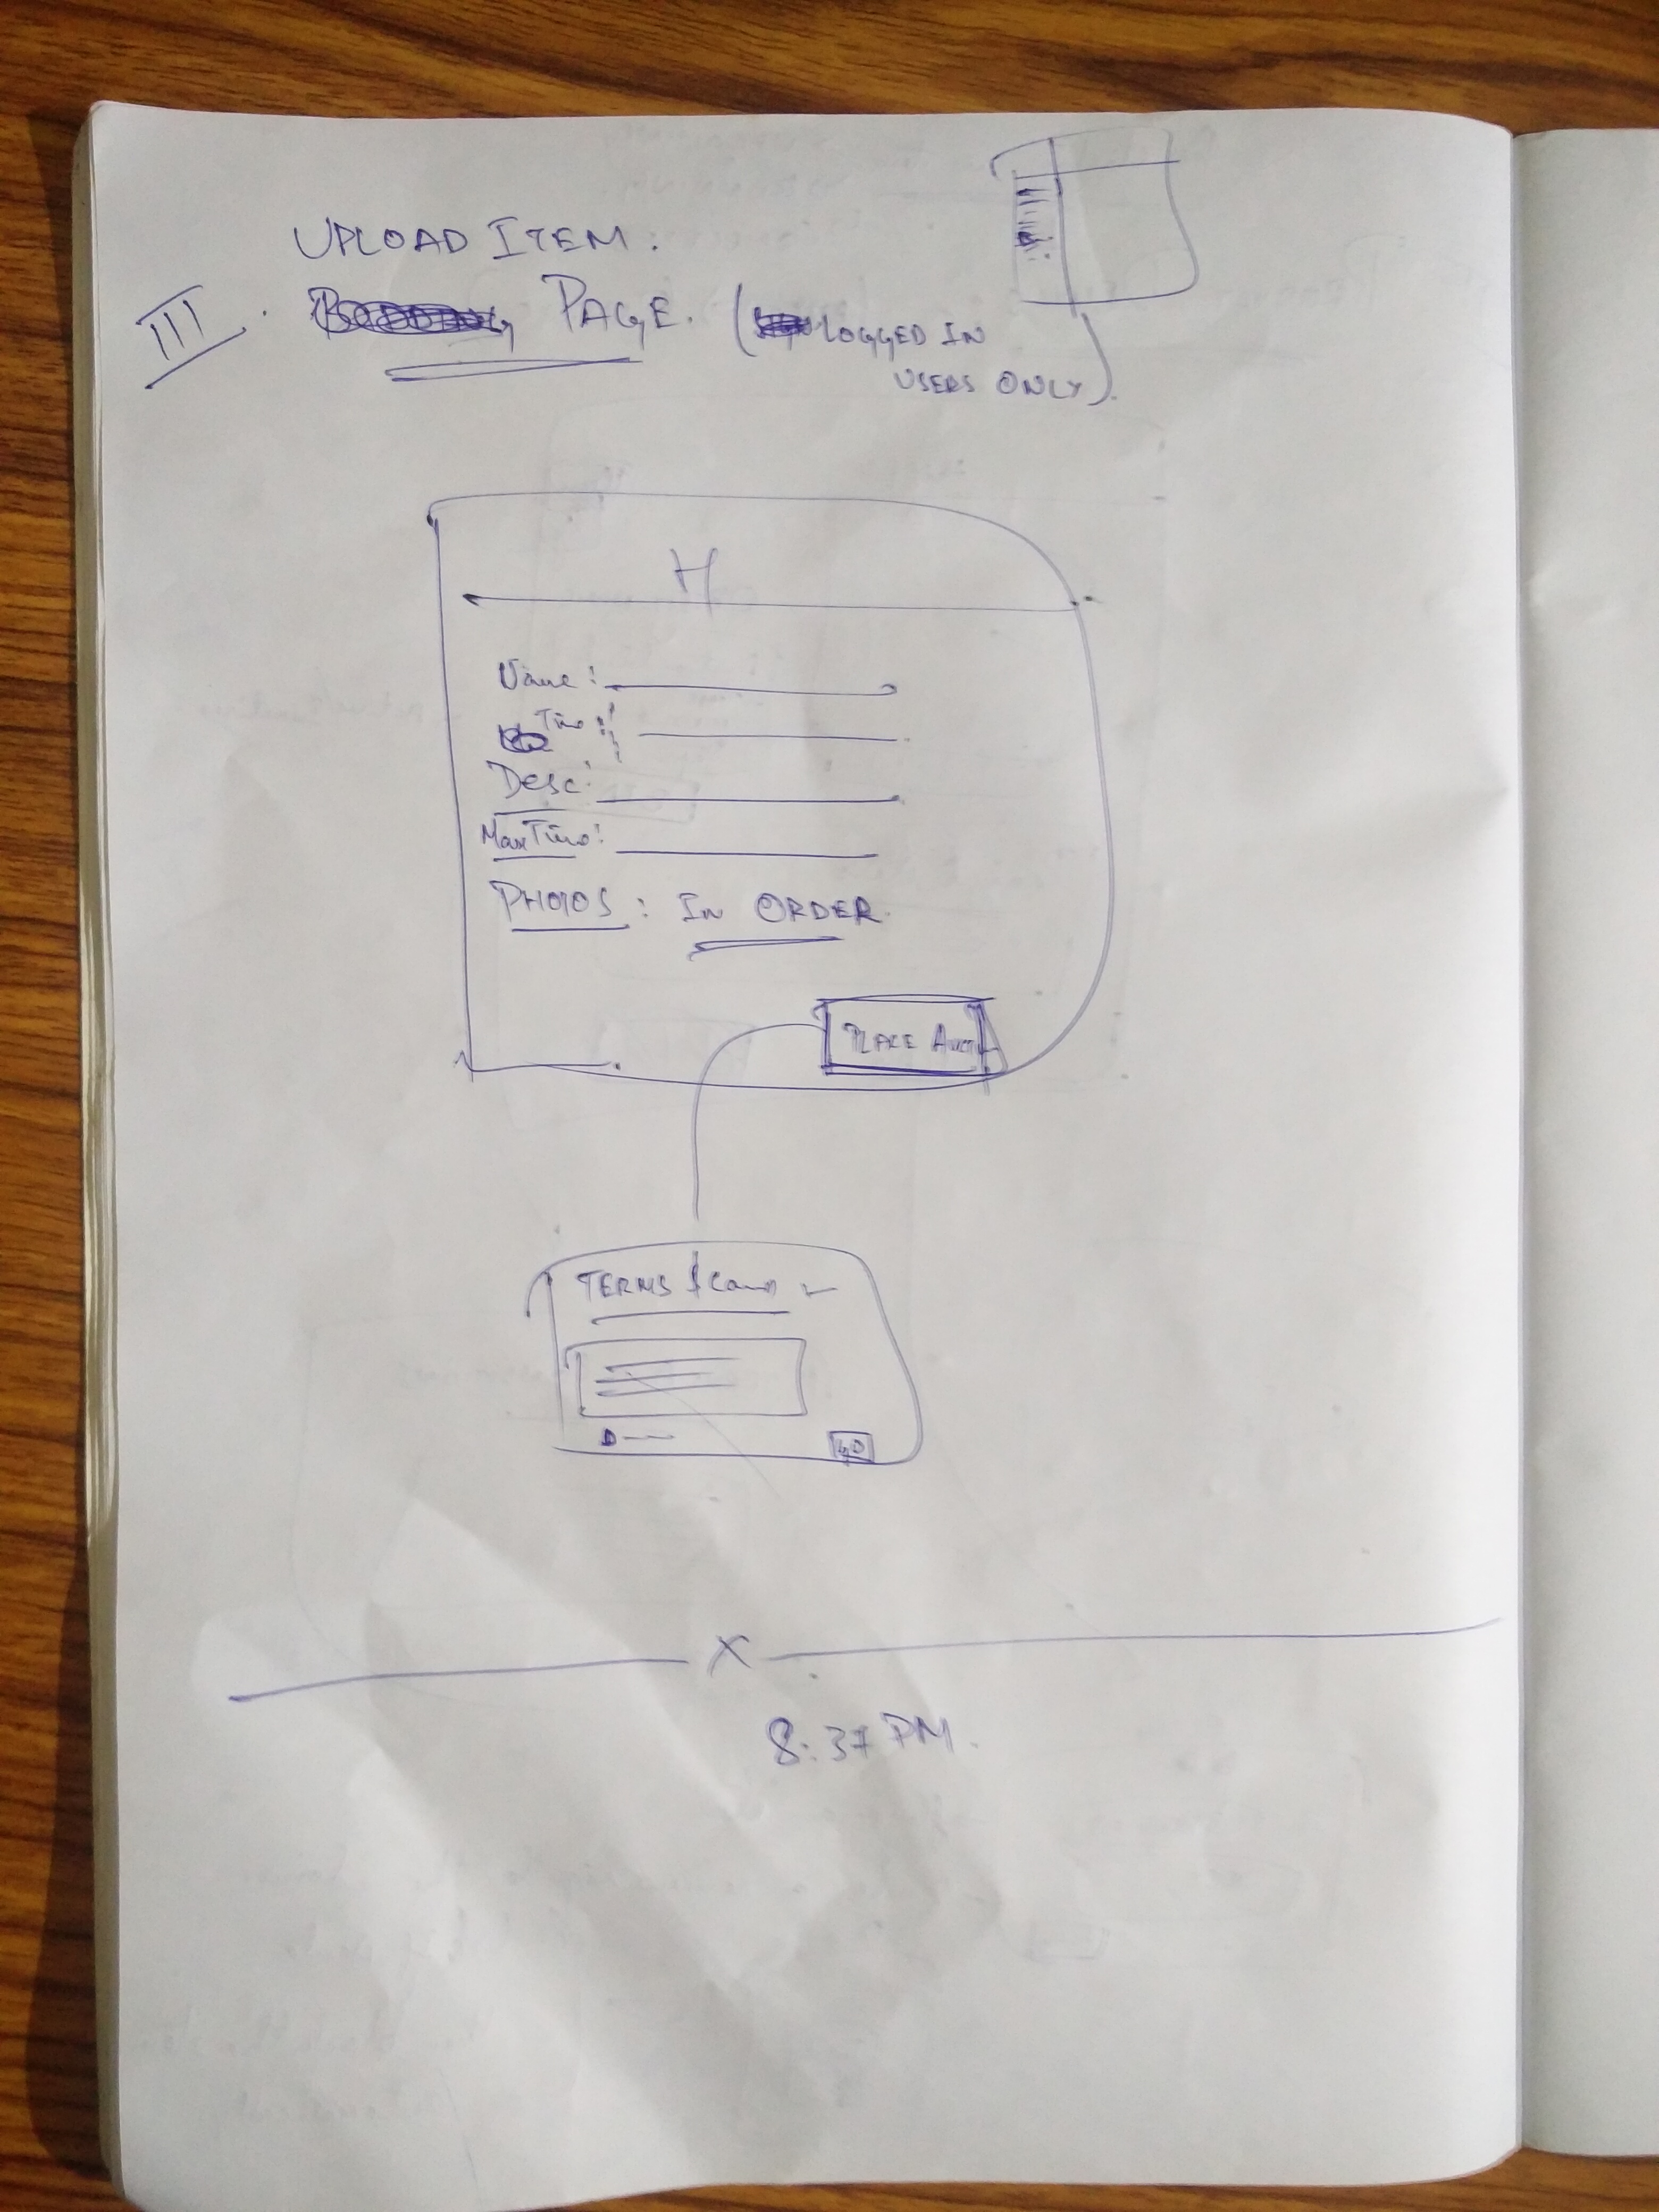 UPLOAD ITEM.
III. PAGE. (LOGGED IN
USERS ONLY).
H
Name:
Time:
Desc:
Max Time:
PHOTOS: IN ORDER.
PLACE
TERMS &
GO
X
8:37 PM.